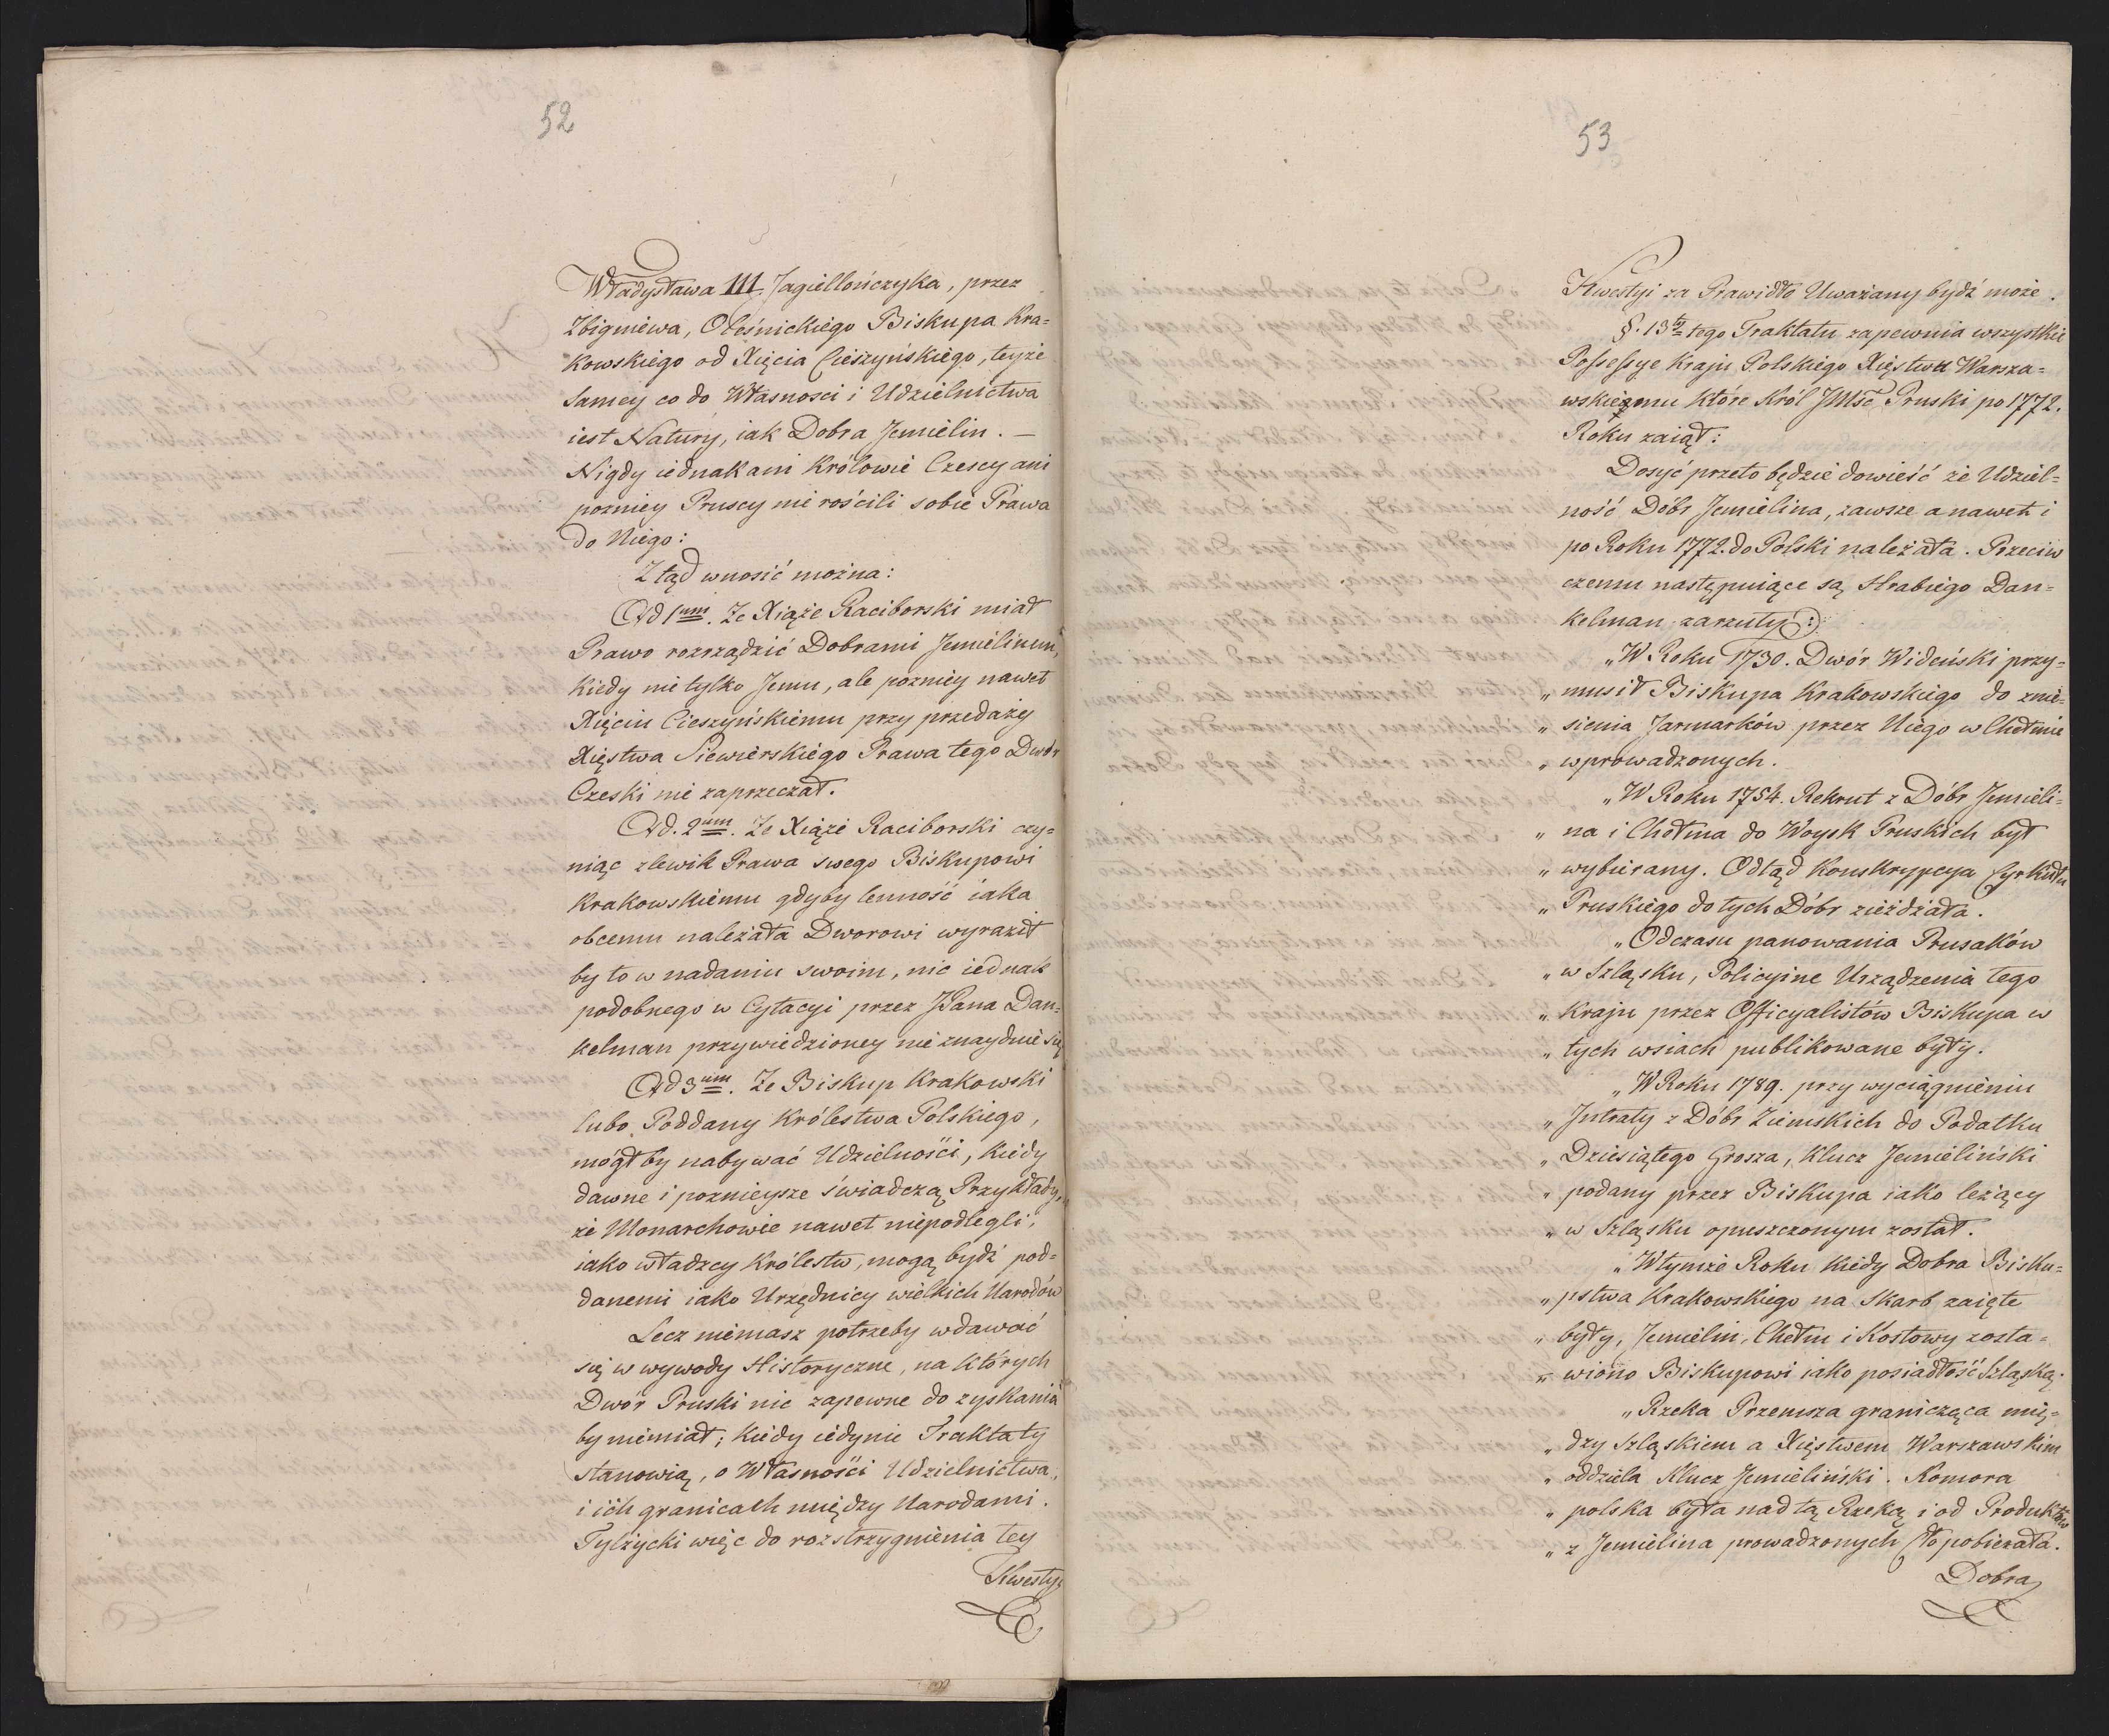 52
Władysława III. Jagiellończyka, przez
Zbigniewa, Oleśnickiego Biskupa Kra=
kowskiego od Xięcia Cieszyńskiego, teyże
samey co do Własnosci i Udzielnictwa
iest Natury, iak Dobra Jemielin. —
Nigdy iednak ani Królowie Czescy ani
pozniey Pruscy nie rościli sobie Prawa
do Niego:
Ztąd wnosić można:
Ad 1um. Ze Xiąże Raciborski miał
Prawo rozrządzić Dobrami Jemielinem,
kiedy nie tylko Jemu, ale pozniey nawet
Xięciu Cieszyńskiemu przy przedaży
Xięstwa Siewierskiego Prawa tego Dwór
Czeski nie zaprzeczał.
Ad. 2um. Ze Xiąże Raciborski czy=
niąc zlewik Prawa swego Biskupowi
Krakowskiemu gdyby lenność iaka
obcemu należała Dworowi wyraził
by to w nadaniu swoim, nic iednak
podobnego w Cytacyi przez JPana Dan=
kelman przywiedzioney nie znayduie się
Ad 3um. Ze Biskup Krakowski
lubo Poddany Królestwa Polskiego,
mógł by nabywać Udzielności, kiedy
dawne i poznieysze świadczą Przykłady,
że Monarchowie nawet niepodlegli,
iako władzcy Królestw, mogą bydź pod=
danemi iako Urzędnicy wielkich Narodów
Lecz niemasz potrzeby wdawać
się w wywody Historyczne, na których
Dwór Pruski nic zapewne do zyskania
by niemiał; kiedy iedynie Traktaty
stanowią, o Własności Udzielnictwa,
i ich granicach między Narodami.
Tylżycki więc do rozstrzygnienia tey
Kwestyi
53
Kwestyi za Prawidło Uważany bydź może.
§. 13ty tego Traktatu zapewnia wszystkie
Possessye Kraju Polskiego Xięstwu Warsza=
wskiemu które Król JMść Pruski po 1772.
Roku zaiął:
Dosyć przeto będzie dowieść że Udziel=
ność Dóbr Jemielina, zawsze a nawet i
po Roku 1772. do Polski należała. Przeciw
czemu następuiące są Hrabiego Dan=
kelman zarzuty:
„W Roku 1730. Dwór Wideński przy=
„ musił Biskupa Krakowskiego do znie=
„ sienia Jarmarków przez Niego w Chełmie
„ wprowadzonych.
„W Roku 1754. Rekrut z Dóbr Jemieli=
„ na i Chełma do Woysk Pruskich był
„ wybierany. Odtąd Konskrypcya Cyrkułu
„ Pruskiego do tych Dóbr zieżdżała.
„Od czasu panowania Prusaków
„ w Szląsku, Policyine Urządzenia tego
„ Kraju przez Officyalistów Biskupa w
„ tych wsiach publikowane były.
„W Roku 1789. przy wyciągnieniu
„ Intraty z Dóbr Ziemskich do Podatku
„ Dziesiątego Grosza, Klucz Jemieliński
„ podany przez Biskupa iako leżący
„ w Szląsku opuszczonym został.
„W tymże Roku kiedy Dobra Bisku=
„ pstwa Krakowskiego na Skarb zaięte
„ były, Jemielin, Chełm i Kostowy zosta=
„ wiono Biskupowi iako posiadłość Szląską.
„Rzeka Przemsza granicząca mię=
„ dzy Szląskiem a Xięstwem Warszawskim
„ oddziela Klucz Jemieliński. Komora
„ polska była nad tą Rzeką i od Produktów
„ z Jemielina prowadzonych Cło pobierała.
Dobra